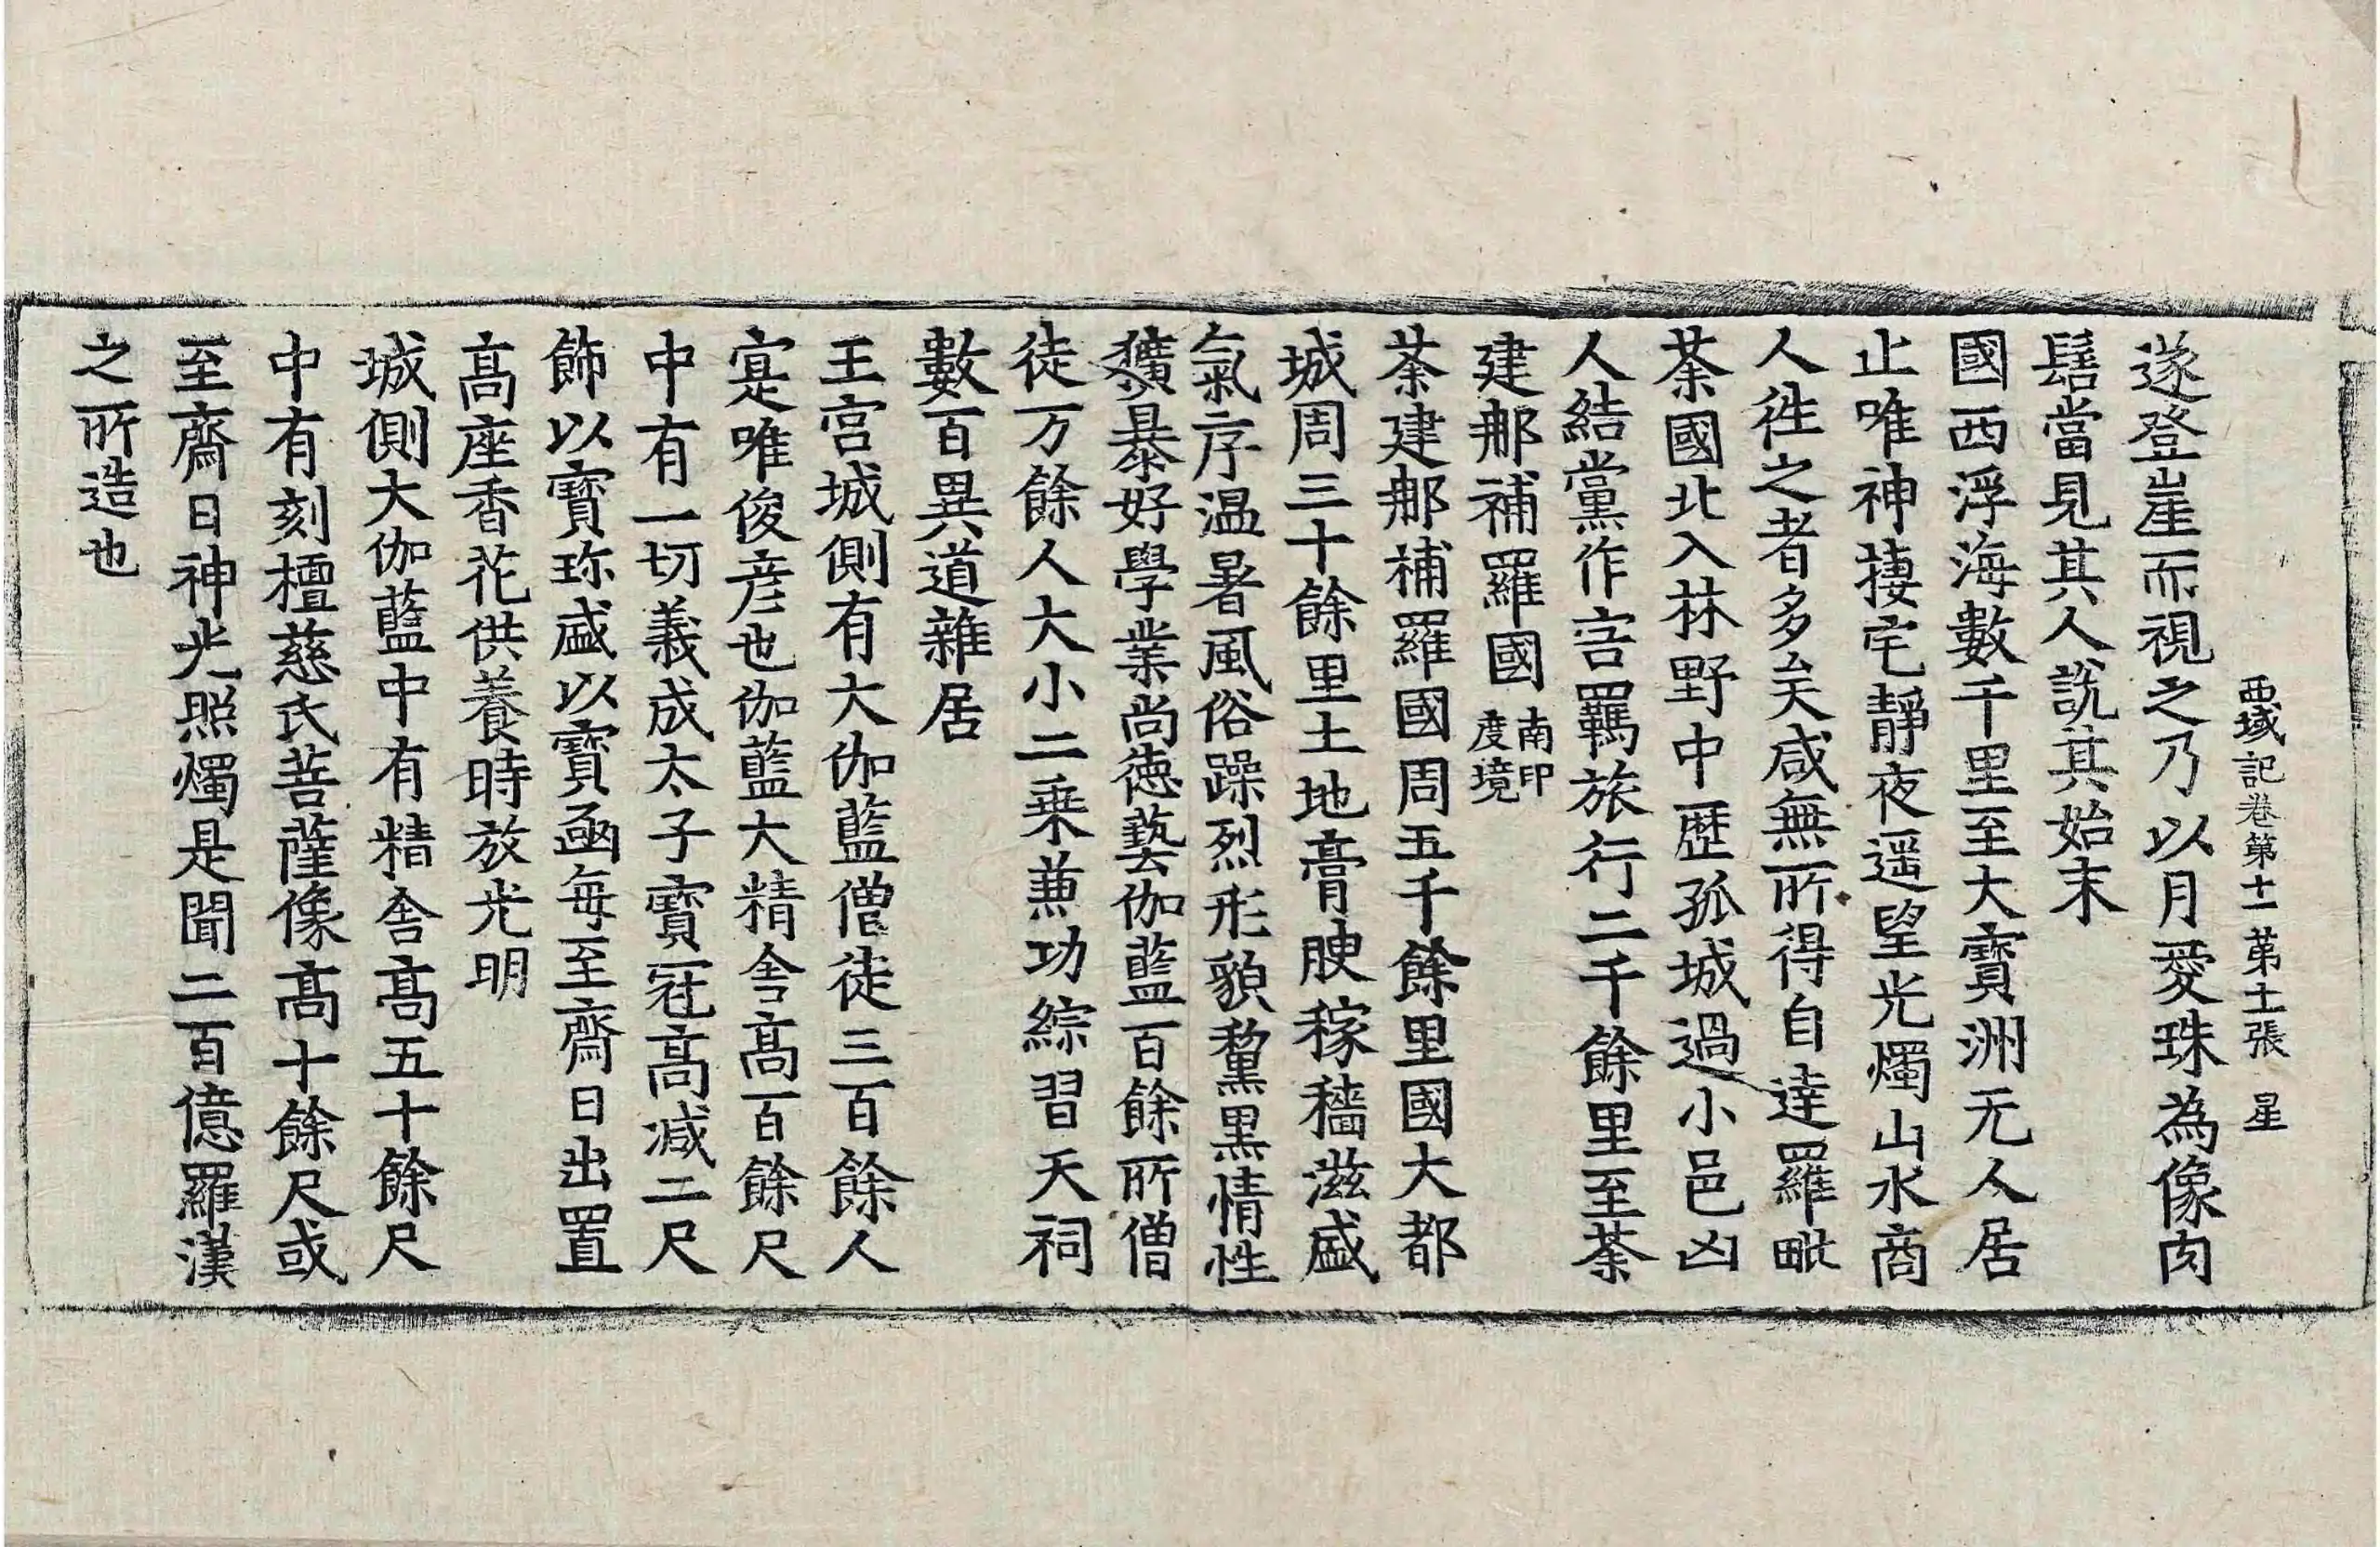 西域記卷第十一 第十二張 星
遂登崖而視之乃以月愛珠為像肉
髻當見其人說其始末
國西浮海數千里至大寶洲无人居
止唯神捿宅靜夜遥望光燭山水商
人徃之者多矣咸無所得自達羅毗
荼國北入林野中歷孤城過小邑凶
人結黨作害羇旅行二千餘里至荼
建那補羅國南印度境
荼建那補羅國周五千餘里國大都
城周三十餘里土地膏腴稼穡滋盛
氣序温暑風俗躁烈形貌黧黑情性
獷暴好學業尚德藝伽藍百餘所僧
徒万餘人大小二乗兼功綜習天祠
數百異道雜居
王宮城側有大伽藍僧徒三百餘人
寔唯俊彦也伽藍大精舍髙百餘尺
中有一切義成太子寶冠髙减二尺
飾以寶珎盛以寶函每至齋日出置
髙座香花供養時放光明
城側大伽藍中有精舍髙五十餘尺
中有刻檀慈氏菩薩像髙十餘尺或
至齋日神光照燭是聞二百億羅漢
之所造也